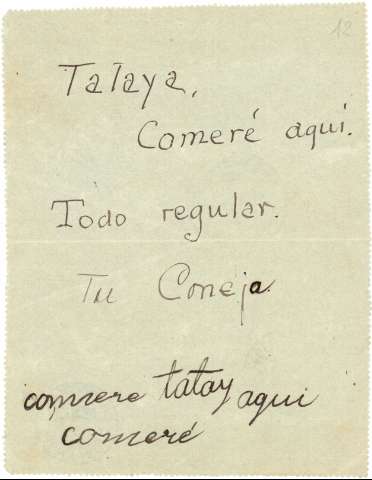 12
Tataya,
Comeré aquí.
Todo regular.
Tu Coneja
comere tatay aqui
comeré